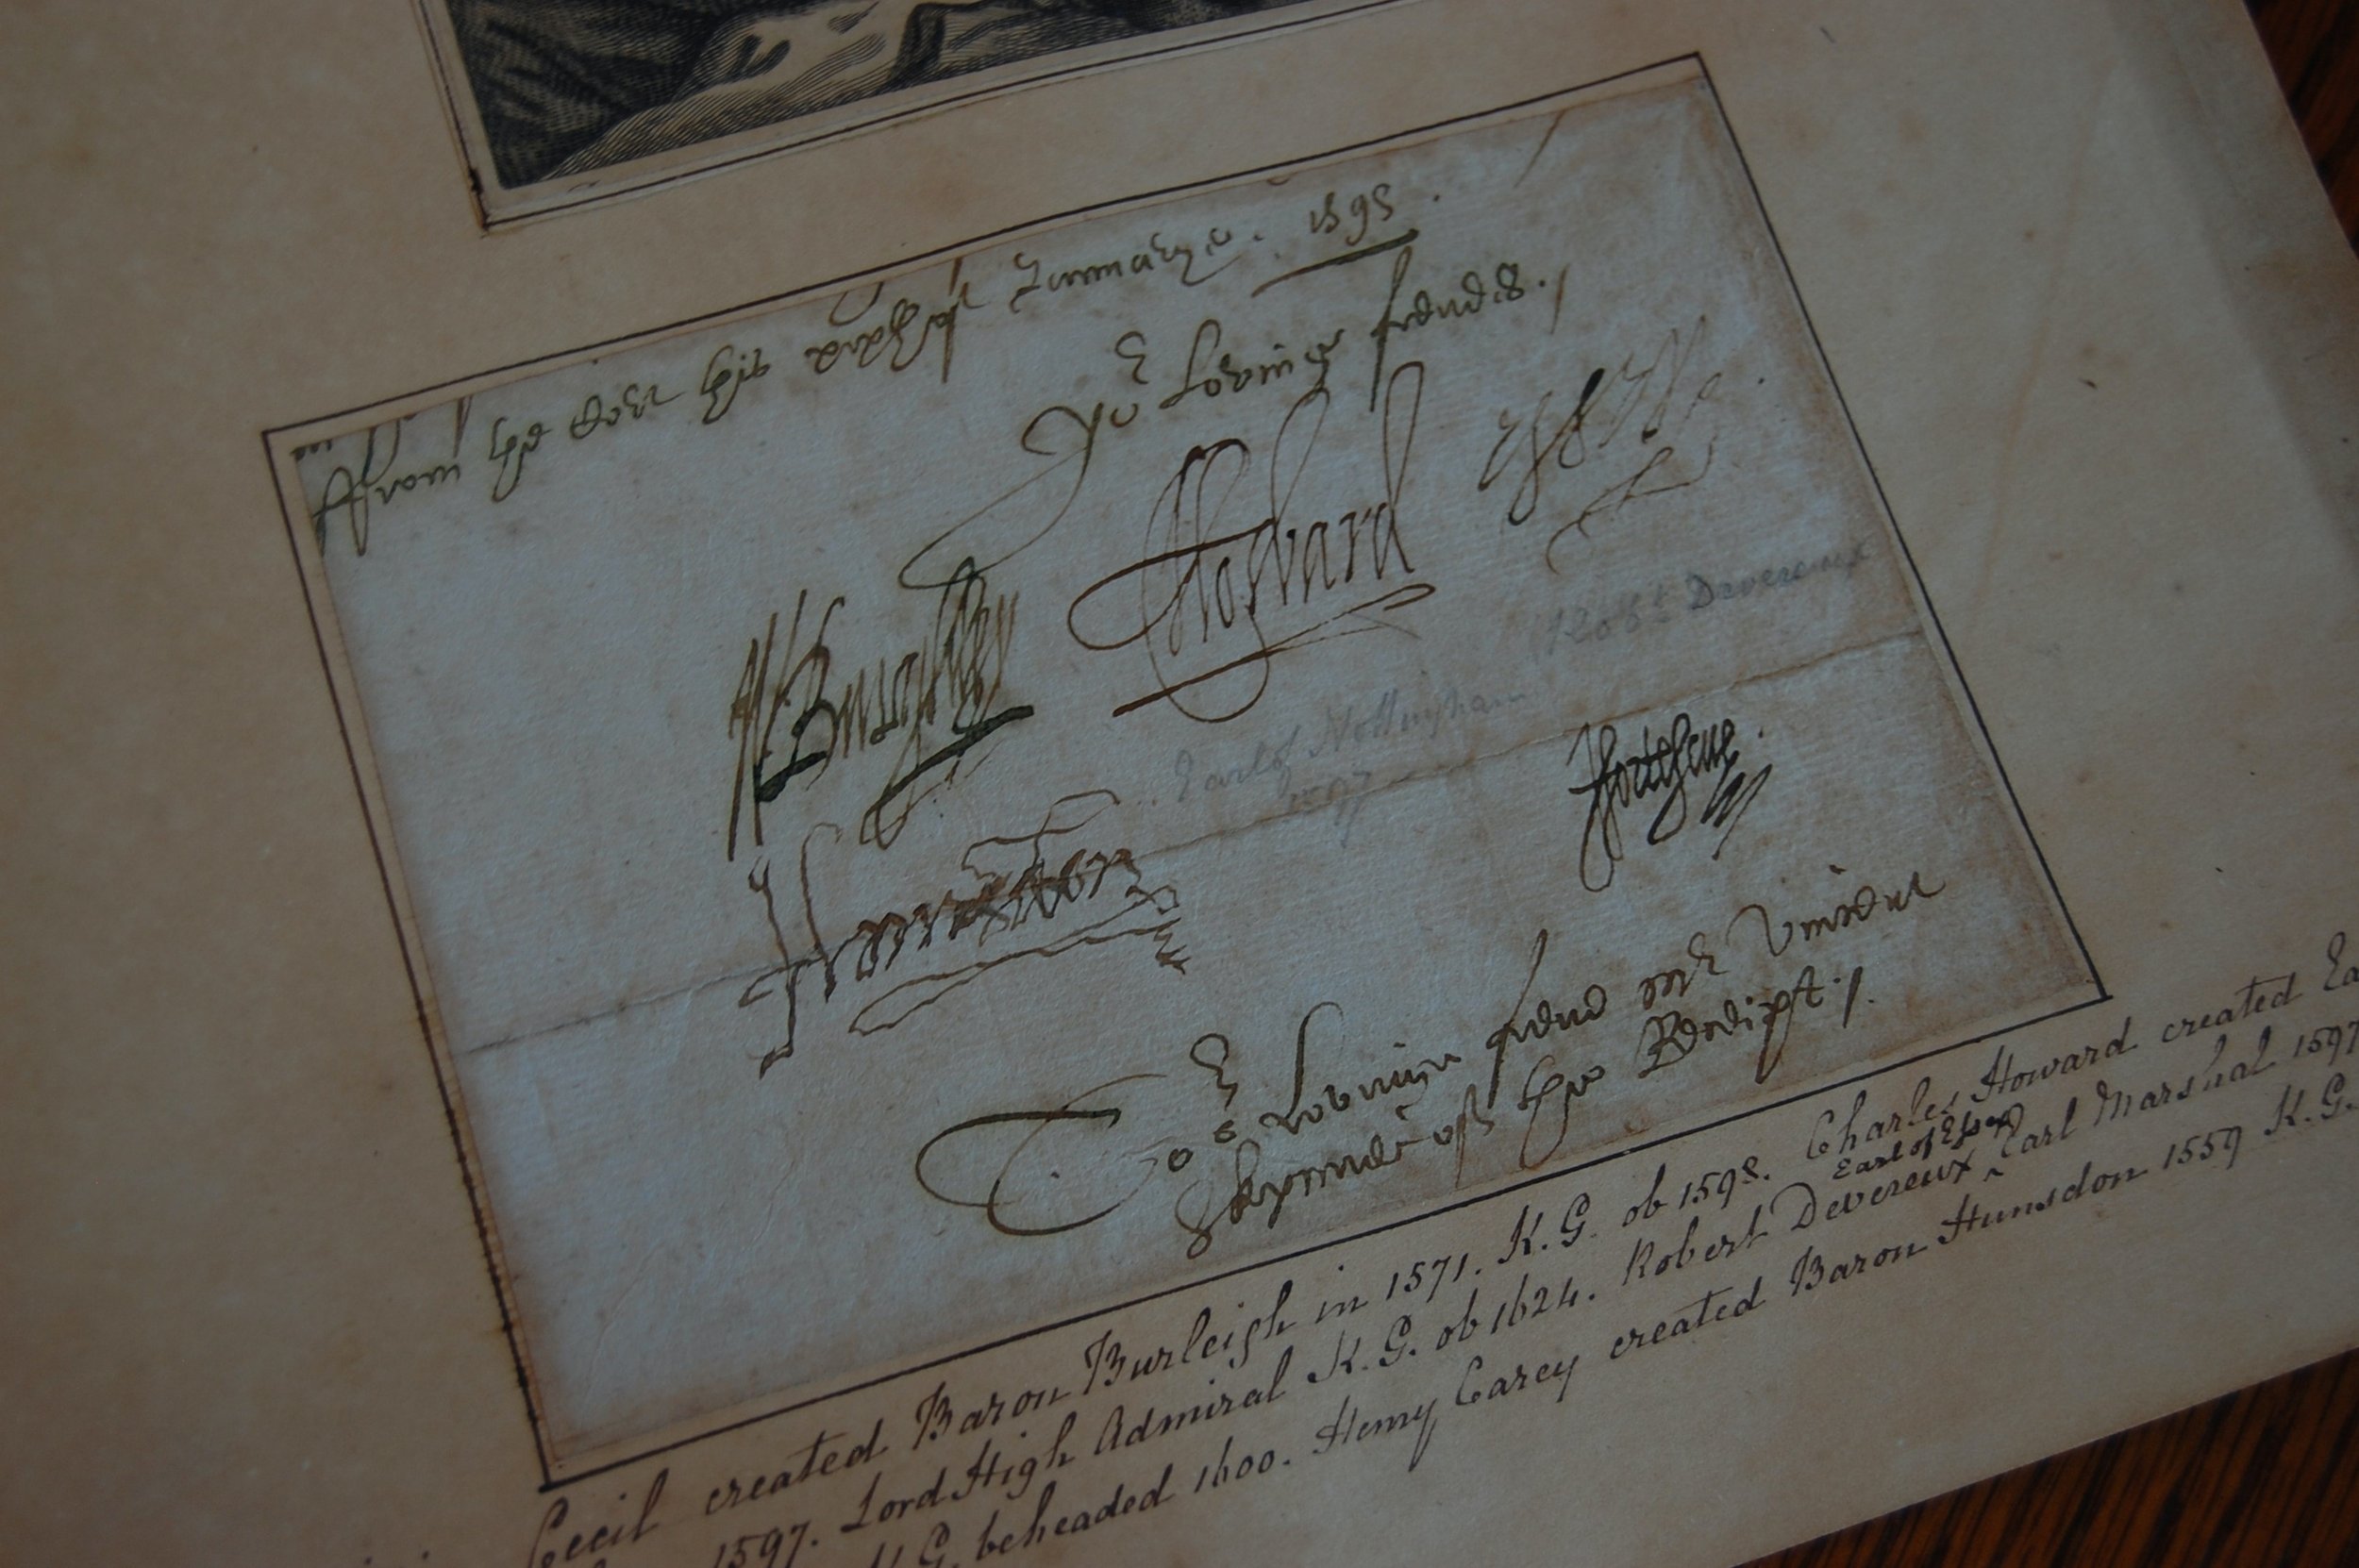 ffrom the Court this xxxth of Januarye. 1595.
Yor Loving frendes./
W Burghley Howard Essex
Robt Devereux
Earl of Nottingham
1597
Hunsdon
J Fortescue.
To or Lovinge frend mr Vincent
Skynner of the Receipt./.
Cecil created Baron Burleigh in 1571. K.G. ob 1598. Charles Howard created Ea
1597. Lord High Admiral K.G. ob 1624. Robert Devereux ^ Earl of Essex Earl Marshal 1597
K.G. beheaded 1600. Henry Carey created Baron Hunsdon 1559 K.G.